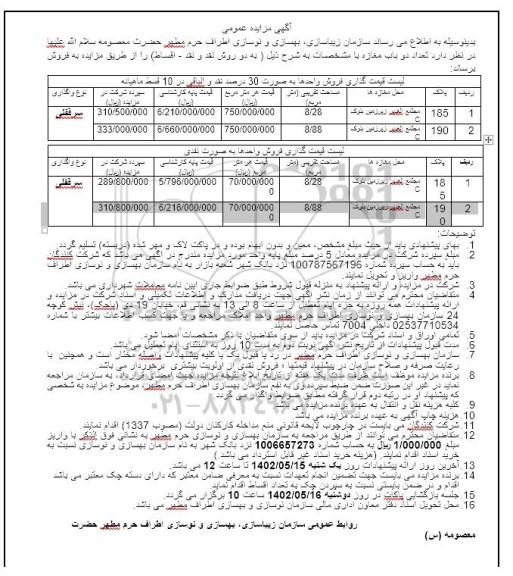 آگهی مزایده عمومی
بدینوسیله به اطلاع می رساند سازمان زیباسازی، بهسازی و نوسازی اطراف حرم مطهر حضرت معصومه سلام الله علیها
در نظر دارد تعداد دو باب مغازه با مشخصات به شرح ذیل ( به دو روش نقد و نقد - اقساط) را از طریق مزایده به فروش
برساند:
لیست قیمت گذاری فروش واحدها به صورت 30 درصد نقد و الباقی در 10 قسط ماهیانه
ردیف پلاک محل مغازه ها مساحت تقریبی (متر مربع) قیمت هر متر مربع (ریال) قیمت پایه کارشناسی (ریال) سپرده شرکت در مزایده (ریال) نوع واگذاری
1 185 مجتمع الغدیر زیرزمین بلوک C 8/28 750/000/000 6/210/000/000 310/500/000 سرقفلی
2 190 مجتمع الغدیر زیرزمین بلوک C 8/88 750/000/000 6/660/000/000 333/000/000
لیست قیمت گذاری فروش واحدها به صورت نقدی
ردیف پلاک محل مغازه ها مساحت تقریبی (متر مربع) قیمت هر متر مربع (ریال) قیمت پایه کارشناسی (ریال) سپرده شرکت در مزایده (ریال) نوع واگذاری
1 185 مجتمع الغدیر زیرزمین بلوک C 8/28 70/000/000 0 5/796/000/000 289/800/000 سرقفلی
2 190 مجتمع الغدیر زیرزمین بلوک C 8/88 70/000/000 0 6/216/000/000 310/800/000
توضیحات:
1. بهای پیشنهادی باید از حیث مبلغ مشخص، معین و بدون ابهام بوده و در پاکت لاک و مهر شده (دربسته) تسلیم گردد.
2. مبلغ سپرده شرکت در مزایده معادل 5 درصد مبلغ پایه واحد مورد مزایده مندرج در آگهی می باشد که شرکت کنندگان
باید به حساب سپرده شماره 100787567196 نزد بانک شهر شعبه بازار به نام سازمان بهسازی و نوسازی اطراف
حرم مطهر واریز و تحویل نمایند.
3. شرکت در مزایده و ارائه پیشنهاد به منزله قبول شروط طبق ضوابط جاری آیین نامه معاملات شهرداری می باشد.
4. متقاضیان محترم می توانند از زمان نشر آگهی جهت دریافت مدارک و اطلاعات تکمیلی و اسناد شرکت در مزایده و
ارائه پیشنهادات همه روزه به جزء ایام تعطیل از ساعت 8 الی 13 به نشانی قم، خیابان 19 دی (باجک)، نبش کوچه
24 سازمان بهسازی و نوسازی اطراف حرم مطهر واحد املاک مراجعه و یا جهت کسب اطلاعات بیشتر با شماره
02537710534 داخلی 7004 تماس حاصل نمایند.
5. تمامی اوراق و اسناد شرکت در مزایده باید از سوی متقاضیان با ذکر مشخصات امضا شود.
6. مدت قبول پیشنهادات از تاریخ نشر آگهی نوبت دوم به مدت 10 روز به استثنای ایام تعطیل می باشد.
7. سازمان بهسازی و نوسازی اطراف حرم مطهر در رد یا قبول یک یا کلیه پیشنهادات واصله مختار است و همچنین با
رعایت صرفه و صلاح سازمان در پیشنهاد قیمتها ؛ فروش نقدی از اولویت بیشتری برخوردار می باشد.
8. برنده مزایده موظف است ظرف مدت یک هفته از تاریخ ابلاغ نتیجه مزایده جهت امضای قرارداد، به سازمان مراجعه
نماید در غیر این صورت ضمن ضبط سپرده وی به نفع سازمان بهسازی اطراف حرم مطهر، موضوع مزایده به شخصی
که پیشنهاد او در رتبه دوم قرار گرفته مطابق ضوابط واگذار می گردد.
9. کلیه هزینه نقل و انتقال به عهده برنده مزایده می باشد.
10. هزینه چاپ آگهی به عهده برنده مزایده می باشد.
11. شرکت کنندگان می بایست در چارچوب لایحه قانونی منع مداخله کارکنان دولت (مصوب 1337) اقدام نمایند.
12. متقاضیان محترم می توانند از طریق مراجعه به سازمان بهسازی و نوسازی حرم مطهر به نشانی فوق الذکر با واریز
مبلغ 1/000/000 ریال به حساب شماره 1006657273 نزد بانک شهر به نام سازمان بهسازی و نوسازی نسبت به
خرید اسناد اقدام نمایند. (هزینه خرید اسناد غیر قابل استرداد می باشد.)
13. آخرین روز ارائه پیشنهادات روز یک شنبه 1402/05/15 تا ساعت 12 می باشد.
14. برنده مزایده می بایست جهت تضمین انجام تعهدات نسبت به معرفی ضامن معتبر که دارای دسته چک معتبر می باشد
اقدام و در ضمن بایستی نسبت به سپردن چک به تعداد اقساط اقدام نماید.
15. جلسه بازگشایی پاکات در روز دوشنبه 1402/05/16 ساعت 10 برگزار می گردد.
16. محل تحویل اسناد دفتر معاون اداری مالی سازمان نوسازی و بهسازی اطراف حرم مطهر می باشد.
روابط عمومی سازمان زیباسازی، بهسازی و نوسازی اطراف حرم مطهر حضرت
معصومه (س)